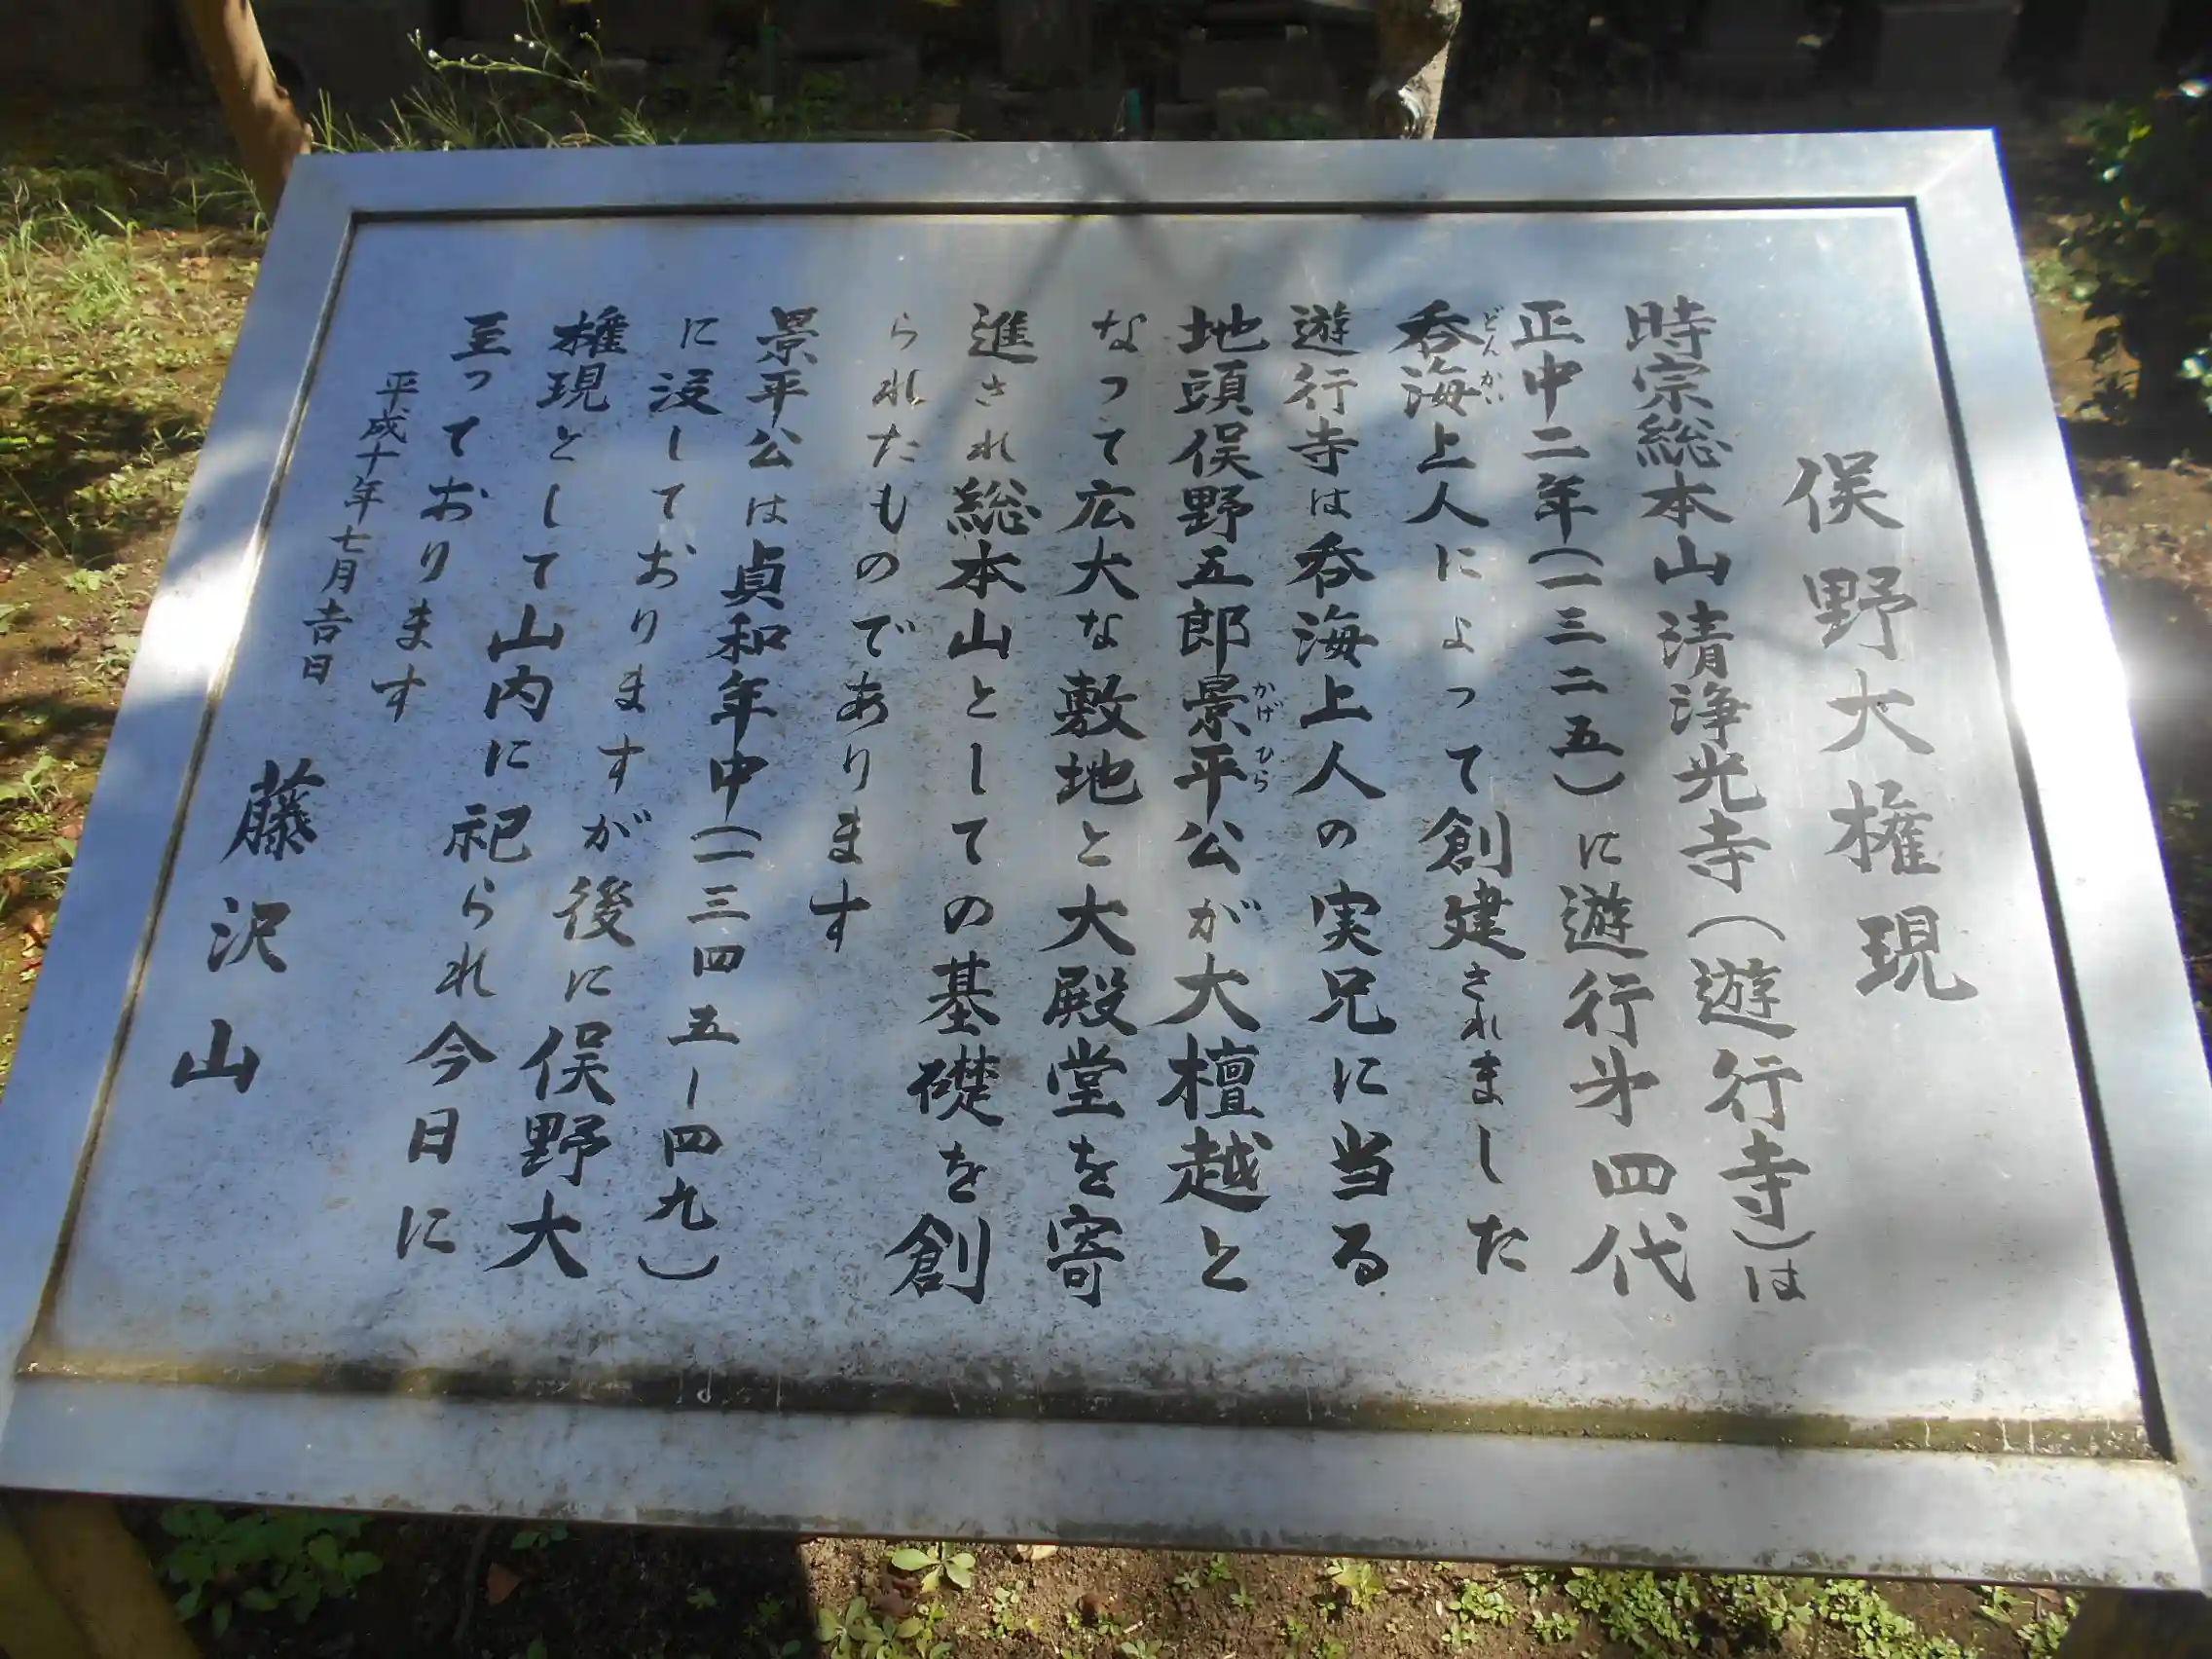 俣野大権現
時宗総本山清浄光寺（遊行寺）は
正中二年（一三二五）に遊行㐧四代
呑海上人によって創建されました
どんかい
遊行寺は呑海上人の実兄に当る
地頭俣野五郎景平公が大檀越と
かげひら
なって広大な敷地と大殿堂を寄
進され総本山としての基礎を創
られたものであります
景平公は貞和年中（一三四五ー四九）
に没しておりますが後に俣野大
権現として山内に祀られ今日に
至っております
平成十年七月吉日
藤沢山